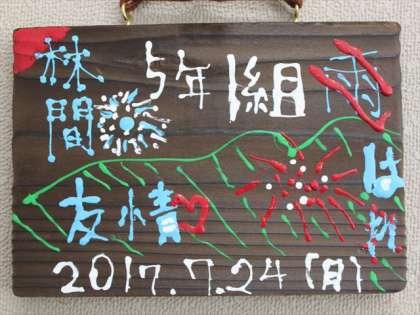 林間 5年組
雨
は
友情
2017.7.24(月)